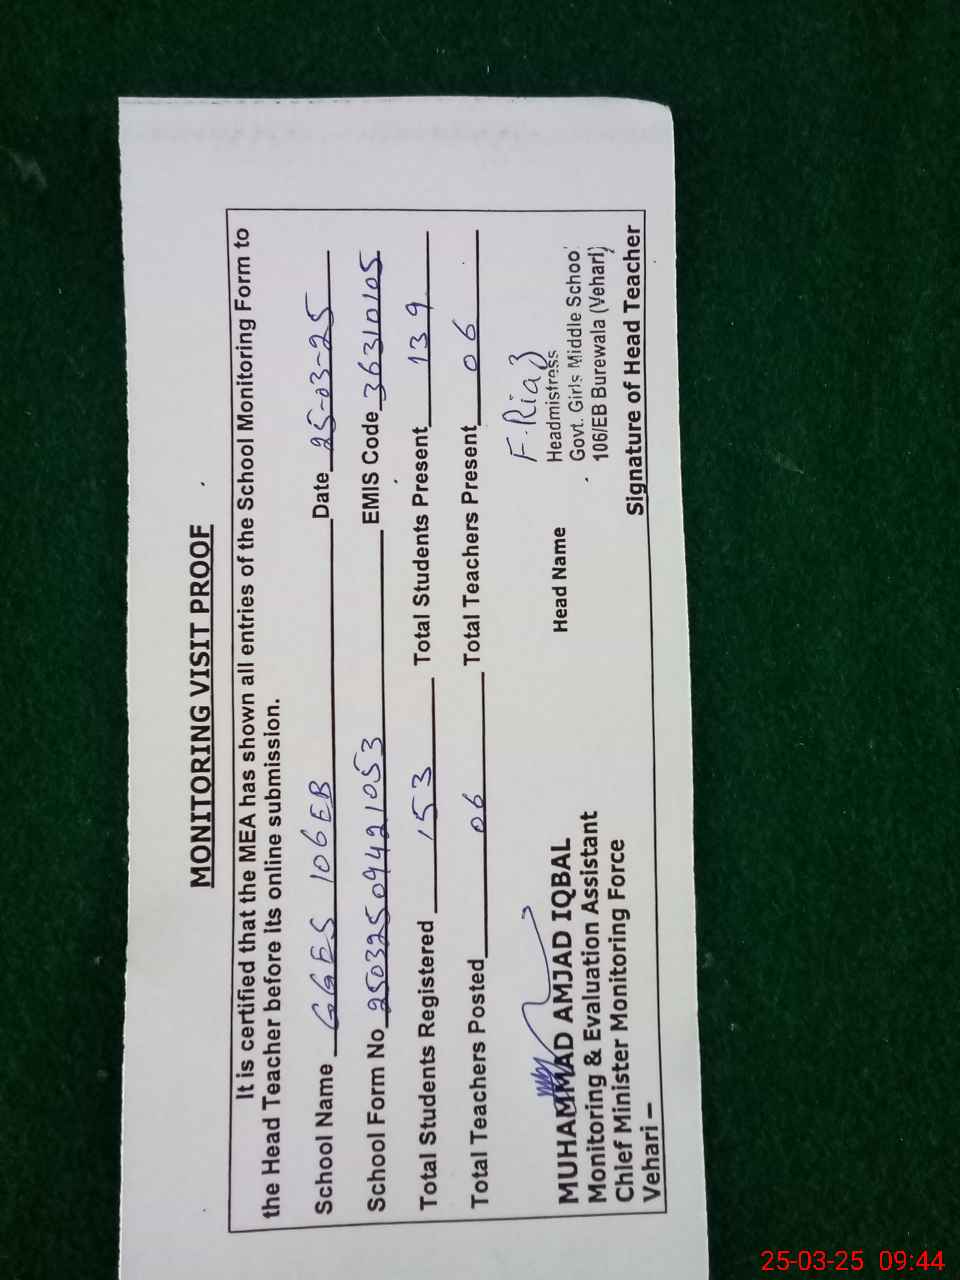 MONITORING VISIT PROOF
It is certified that the MEA has shown all entries of the School Monitoring Form to
the Head Teacher before its online submission.
School Name GGES 106EB Date 25-03-25
School Form No 250325094421053 EMIS Code 36310105
Total Students Registered 153 Total Students Present 139
Total Teachers Posted 06 Total Teachers Present 06
F.Riaz
Headmistress
Govt. Girls Middle School
106/EB Burewala (Vehari)
Head Name
Signature of Head Teacher
MUHAMMAD AMJAD IQBAL
Monitoring & Evaluation Assistant
Chief Minister Monitoring Force
Vehari –
25-03-25 09:44